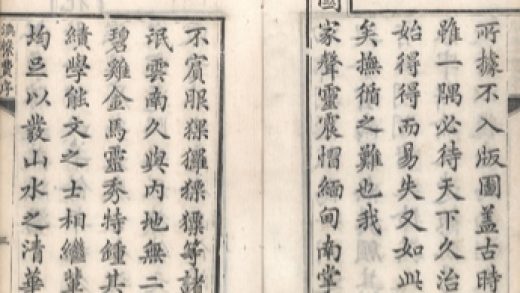 所據不入版圖蓋古時
雖一隅必待天下久治
始得得而易失又如此
矣撫循之難也我
國
家聲靈震慴緬甸南掌
不賓服猓玀猓猓等諸
氓雲南久與內地無二
碧雞金馬靈秀特鍾其
績學能文之士相繼輩
均足以發山水之清華
滇繫費序